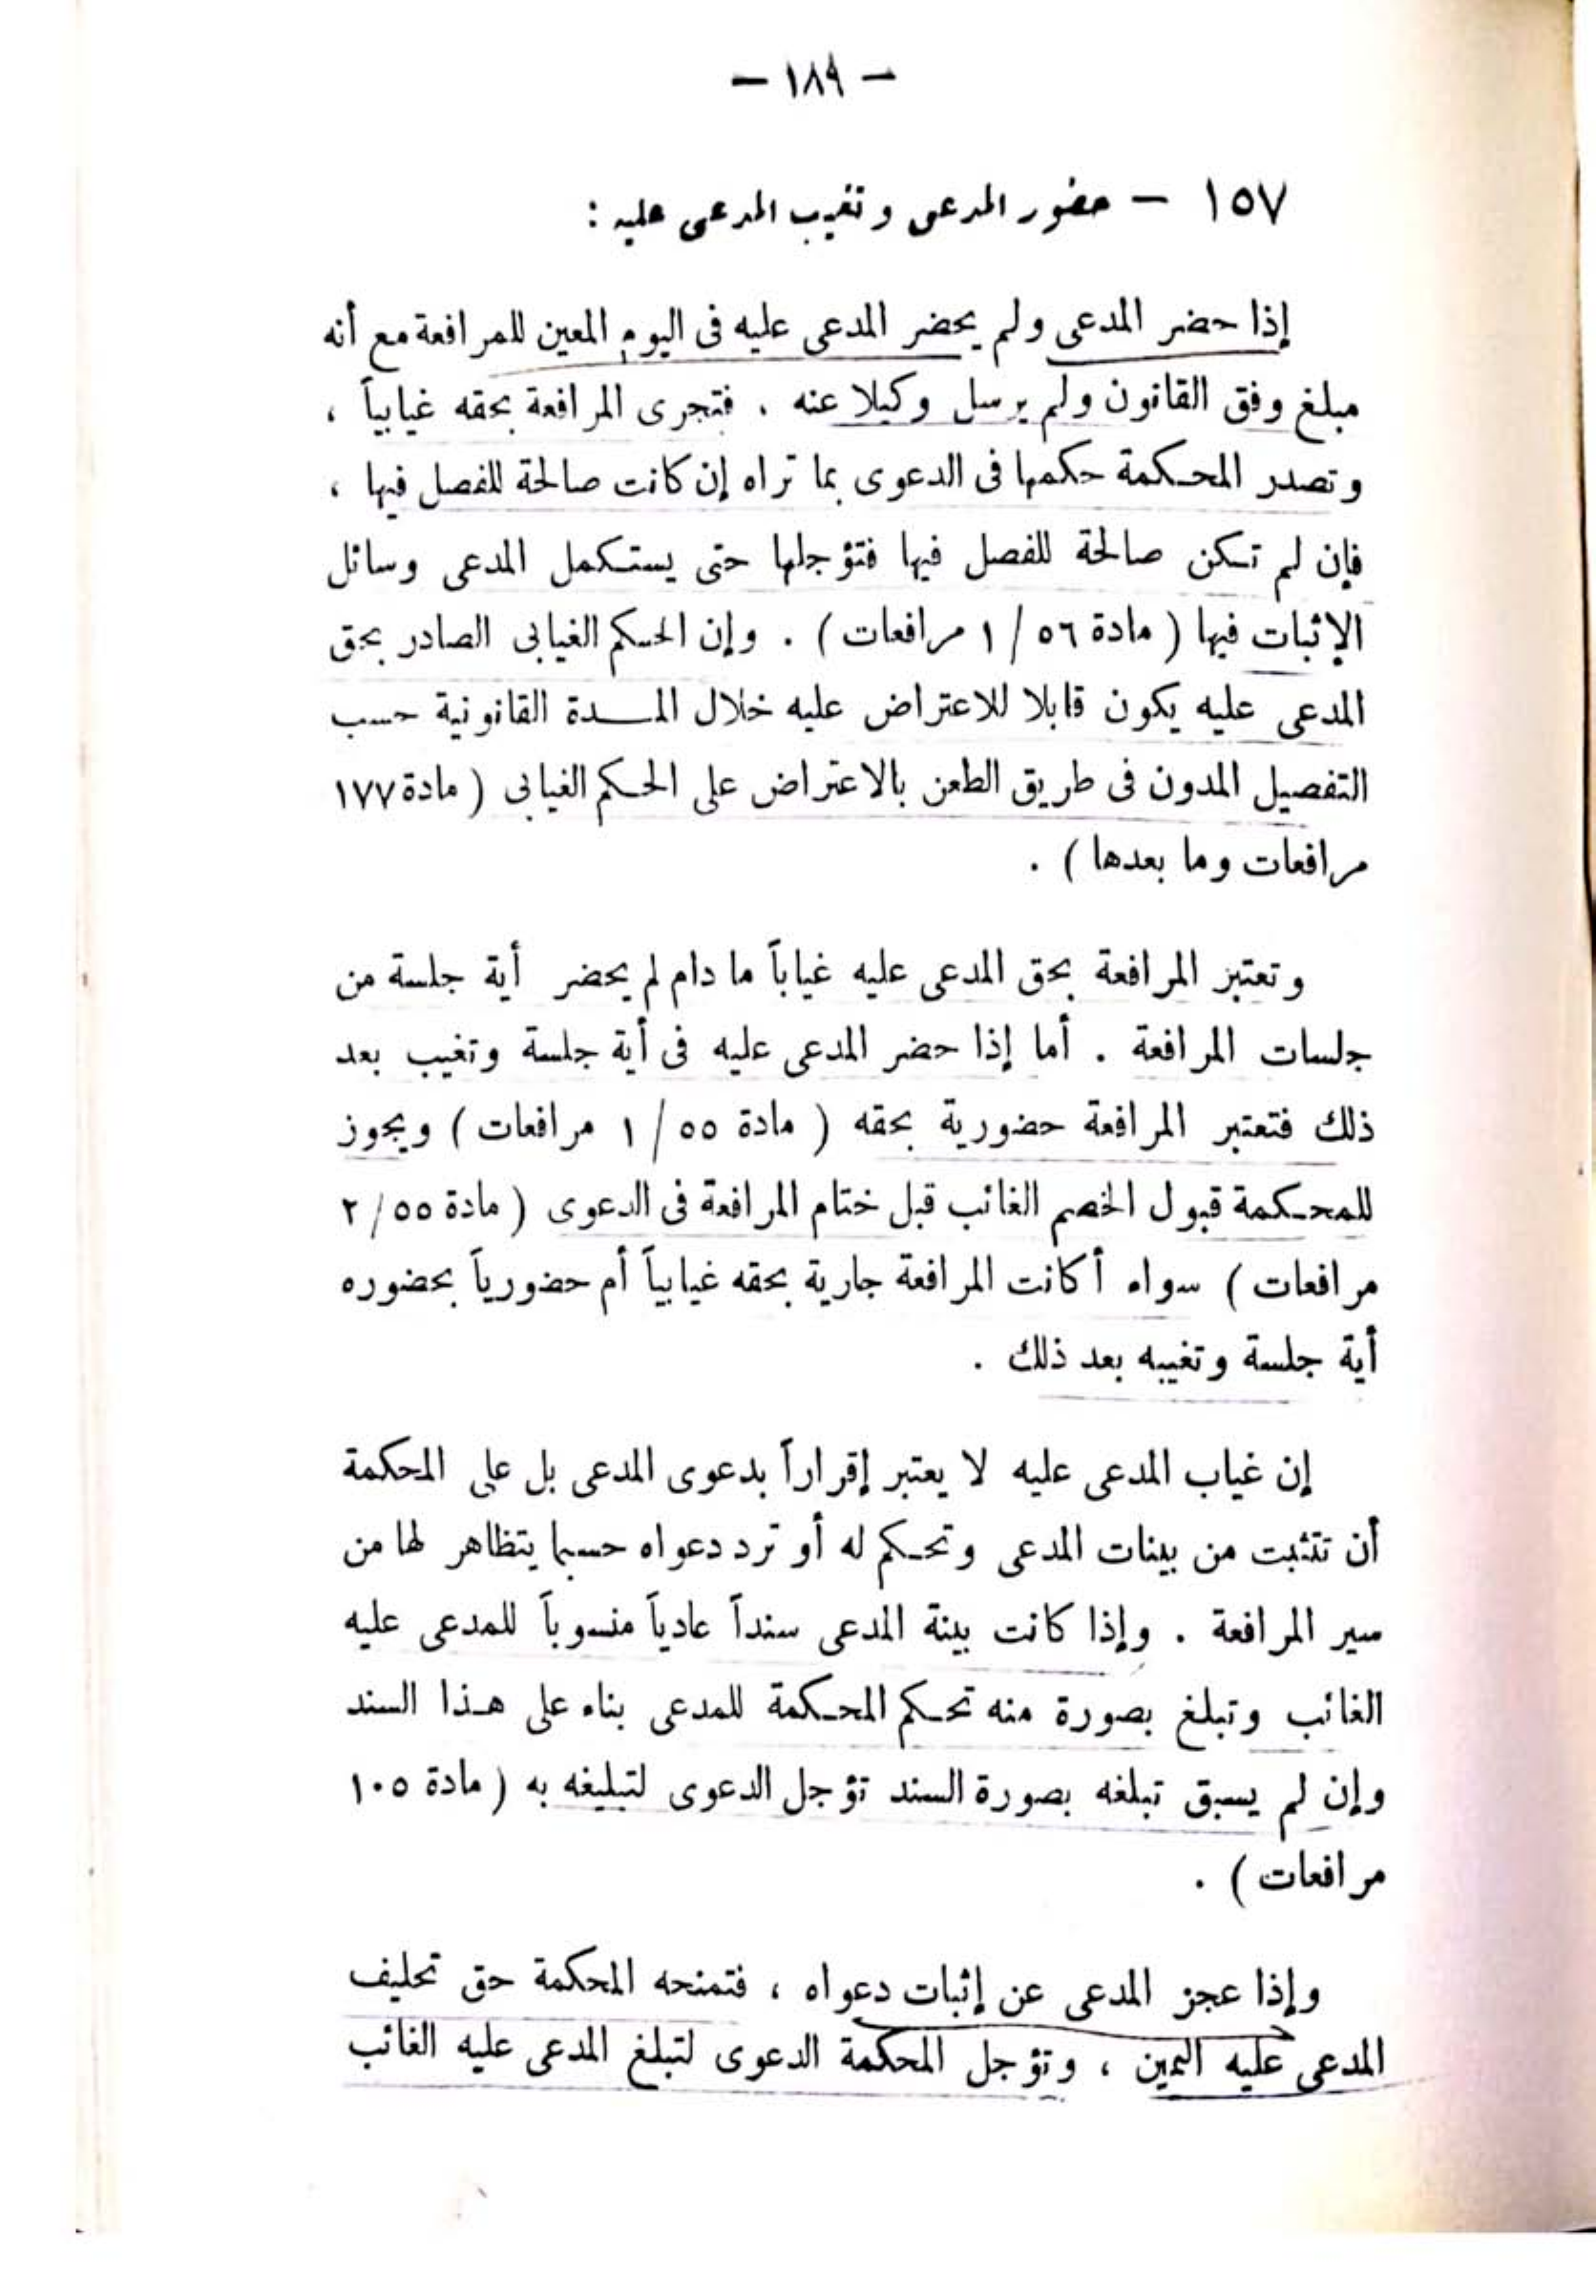 — ١٨٩ —
١٥٧ — حضور المدعى وتغيب المدعى عليه :
إذا حضر المدعى ولم يحضر المدعى عليه فى اليوم المعين للمرافعة مع أنه
مبلغ وفق القانون ولم يرسل وكيلا عنه . فتجرى المرافعة بحقه غيابياً ،
وتصدر المحكمة حكمها فى الدعوى بما تراه إن كانت صالحة للفصل فيها ،
فإن لم تكن صالحة للفصل فيها فتؤجلها حتى يستكمل المدعى وسائل
الإثبات فيها ( مادة ٥٦ / ١ مرافعات ) . وإن الحكم الغيابى الصادر بحق
المدعى عليه يكون قابلا للاعتراض عليه خلال المدة القانونية حسب
التفصيل المدون فى طريق الطعن بالاعتراض على الحكم الغيابى ( مادة ١٧٧
مرافعات وما بعدها ) .
وتعتبر المرافعة بحق المدعى عليه غياباً ما دام لم يحضر أية جلسة من
جلسات المرافعة . أما إذا حضر المدعى عليه فى أية جلسة وتغيب بعد
ذلك فتعتبر المرافعة حضورية بحقه ( مادة ٥٥ / ١ مرافعات ) ويجوز
للمحكمة قبول الخصم الغائب قبل ختام المرافعة فى الدعوى ( مادة ٥٥ / ٢
مرافعات ) سواء أكانت المرافعة جارية بحقه غيابياً أم حضورياً بحضوره
أية جلسة وتغيبه بعد ذلك .
إن غياب المدعى عليه لا يعتبر إقراراً بدعوى المدعى بل على المحكمة
أن تتثبت من بينات المدعى وتحكم له أو ترد دعواه حسبما يتظاهر لها من
سير المرافعة . وإذا كانت بينة المدعى سنداً عادياً منسوباً للمدعى عليه
الغائب وتبلغ بصورة منه تحكم المحكمة للمدعى بناء على هذا السند
وإن لم يسبق تبلغه بصورة السند تؤجل الدعوى لتبليغه به ( مادة ١٠٥
مرافعات ) .
وإذا عجز المدعى عن إثبات دعواه ، فتمنحه المحكمة حق تحليف
المدعى عليه اليمين ، وتؤجل المحكمة الدعوى لتبلغ المدعى عليه الغائب